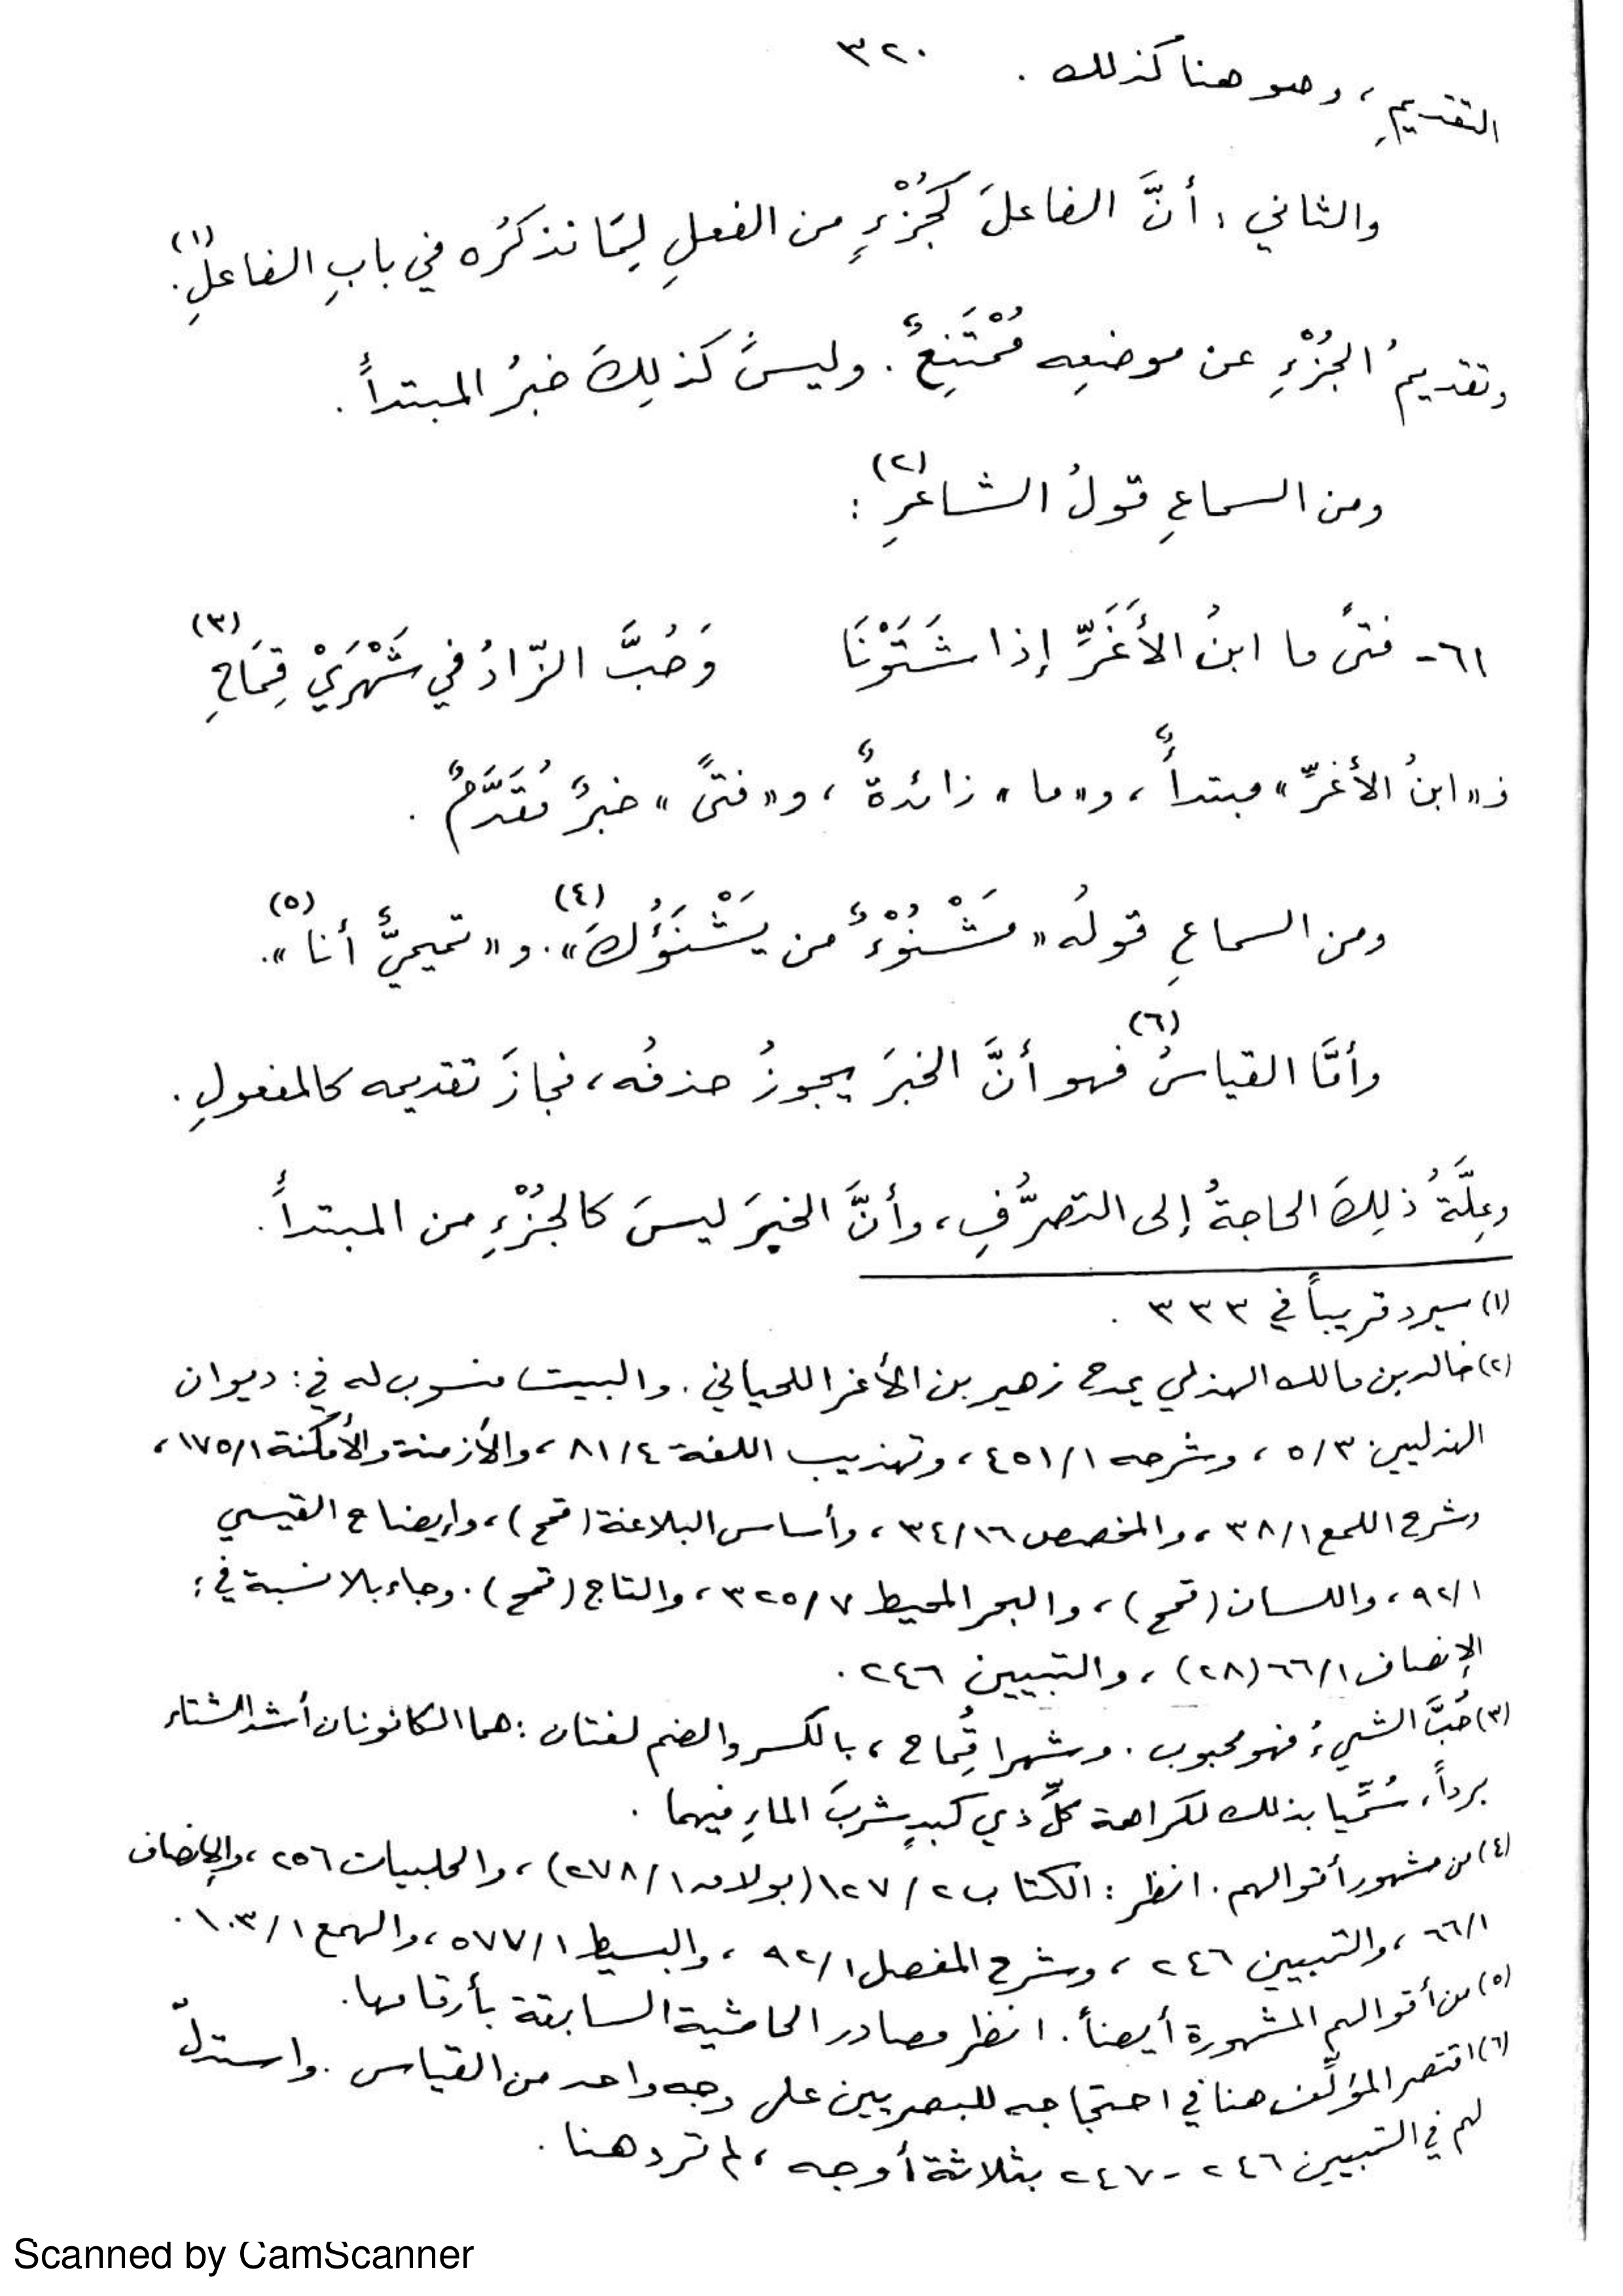 ٣٢٠
التقديمِ، وهو هنا كذلك .
والثاني : أنَّ الفاعلَ كَجُزْءٍ من الفعلِ لِمَا نذكرُه في بابِ الفاعلِ(١).
وتقديمُ الجُزْءِ عن موضعِه مُمْتَنِعٌ . وليسَ كذلِكَ خبرُ المبتدأ .
ومن السماعِ قولُ الشاعرِ(٢) :
٦١- فتىً ما ابنُ الأَغَرِّ إذا شَتَوْنَا وَحُبَّ الزّادُ في شَهْرَيْ قِمَاحِ(٣)
فـ«ابنُ الأغرِّ» مبتدأٌ، و«ما» زائدةٌ، و«فتىً» خبرٌ مُقَدَّمٌ .
ومن السماعِ قولُه «مَشْنُوْءٌ من يَشْنَؤُكَ»(٤). و«تميميٌّ أنا»(٥).
وأمَّا القياسُ(٦) فهو أنَّ الخبرَ يجوزُ حذفُه، فجازَ تقديمه كالمفعولِ .
وعِلَّةُ ذلِكَ الحاجةُ إلى التصرُّفِ، وأنَّ الخبرَ ليسَ كالجُزْءِ من المبتدأ .
(١) سيرد قريباً في ٣٣٣ .
(٢) خالد بن مالك الهذلي يمدح زهير بن الأغر اللحياني . والبيت منسوب له في : ديوان
الهذليين ٥/٣ ، وشرحه ٤٥١/١ ، وتهذيب اللغة ٨١/٤ ، والأزمنة والأمكنة ١٧٥/١ ،
وشرح اللمع ٣٨/١ ، والمخصص ٣٤/١٦ ، وأساس البلاغة (قمح) ، وإيضاح القيسي
٩٢/١ ، واللسان (قمح) ، والبحر المحيط ٣٢٥/٧ ، والتاج (قمح) . وجاء بلا نسبة في :
الإنصاف ٦٦/١ (٢٨) ، والتبيين ٢٤٦ .
(٣) حُبَّ الشيءُ فهو محبوب . وشهرا قُِماح ، بالكسر والضم لغتان : هما الكانونان أشد الشتاء
برداً، سُمِّيا بذلك لكراهة كلِّ ذي كبدٍ شربَ الماءِ فيهما .
(٤) من مشهور أقوالهم . انظر : الكتاب ١٢٧/٢ (بولاق ٢٧٨/١) ، والحلبيات ٢٥٦ ، والإنصاف
٦٦/١ ، والتبيين ٢٤٦ ، وشرح المفصل ٩٢/١ ، والبسيط ٥٧٧/١ ، والهمع ١٠٣/١ .
(٥) من أقوالهم المشهورة أيضاً . انظر مصادر الحاشية السابقة بأرقامها .
(٦) اقتصر المؤلِّف هنا في احتجاجه للبصريين على وجه واحد من القياس . واستدلّ
لهم في التبيين ٢٤٦ - ٢٤٧ بثلاثة أوجه ، لم ترد هنا .
Scanned by CamScanner